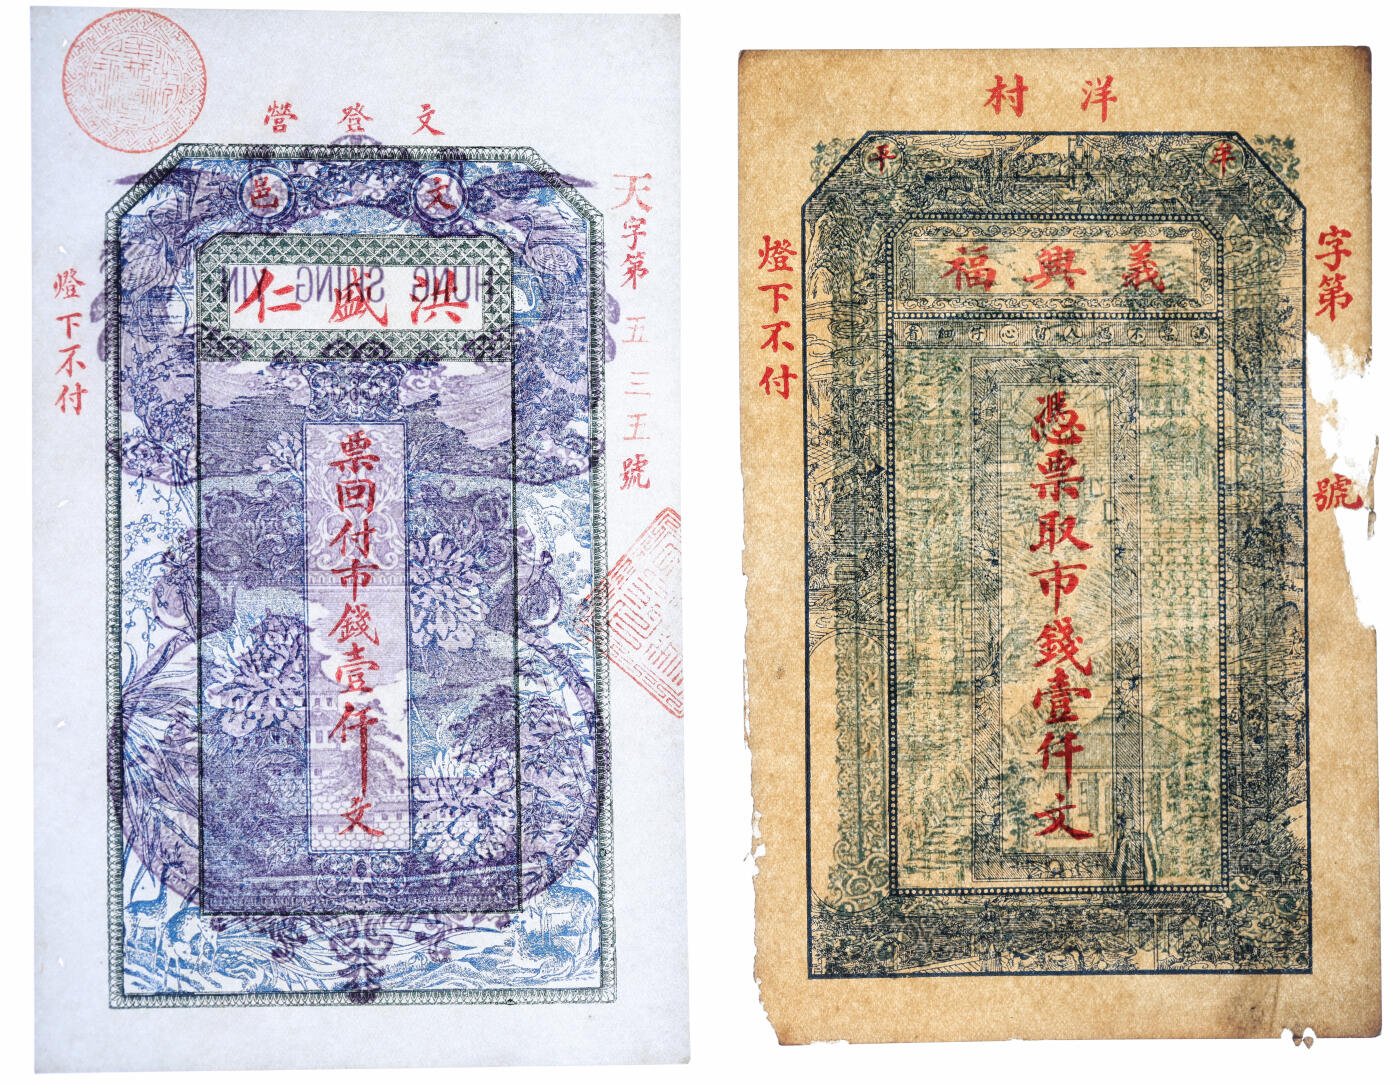 文登營
文邑
洪盛仁
HUNG SHING YIN
天字第五三五號
票回付市錢壹仟文
燈下不付
洋村
牟平
義興福
認票不認人留心仔細看
字第號
憑票取市錢壹仟文
燈下不付